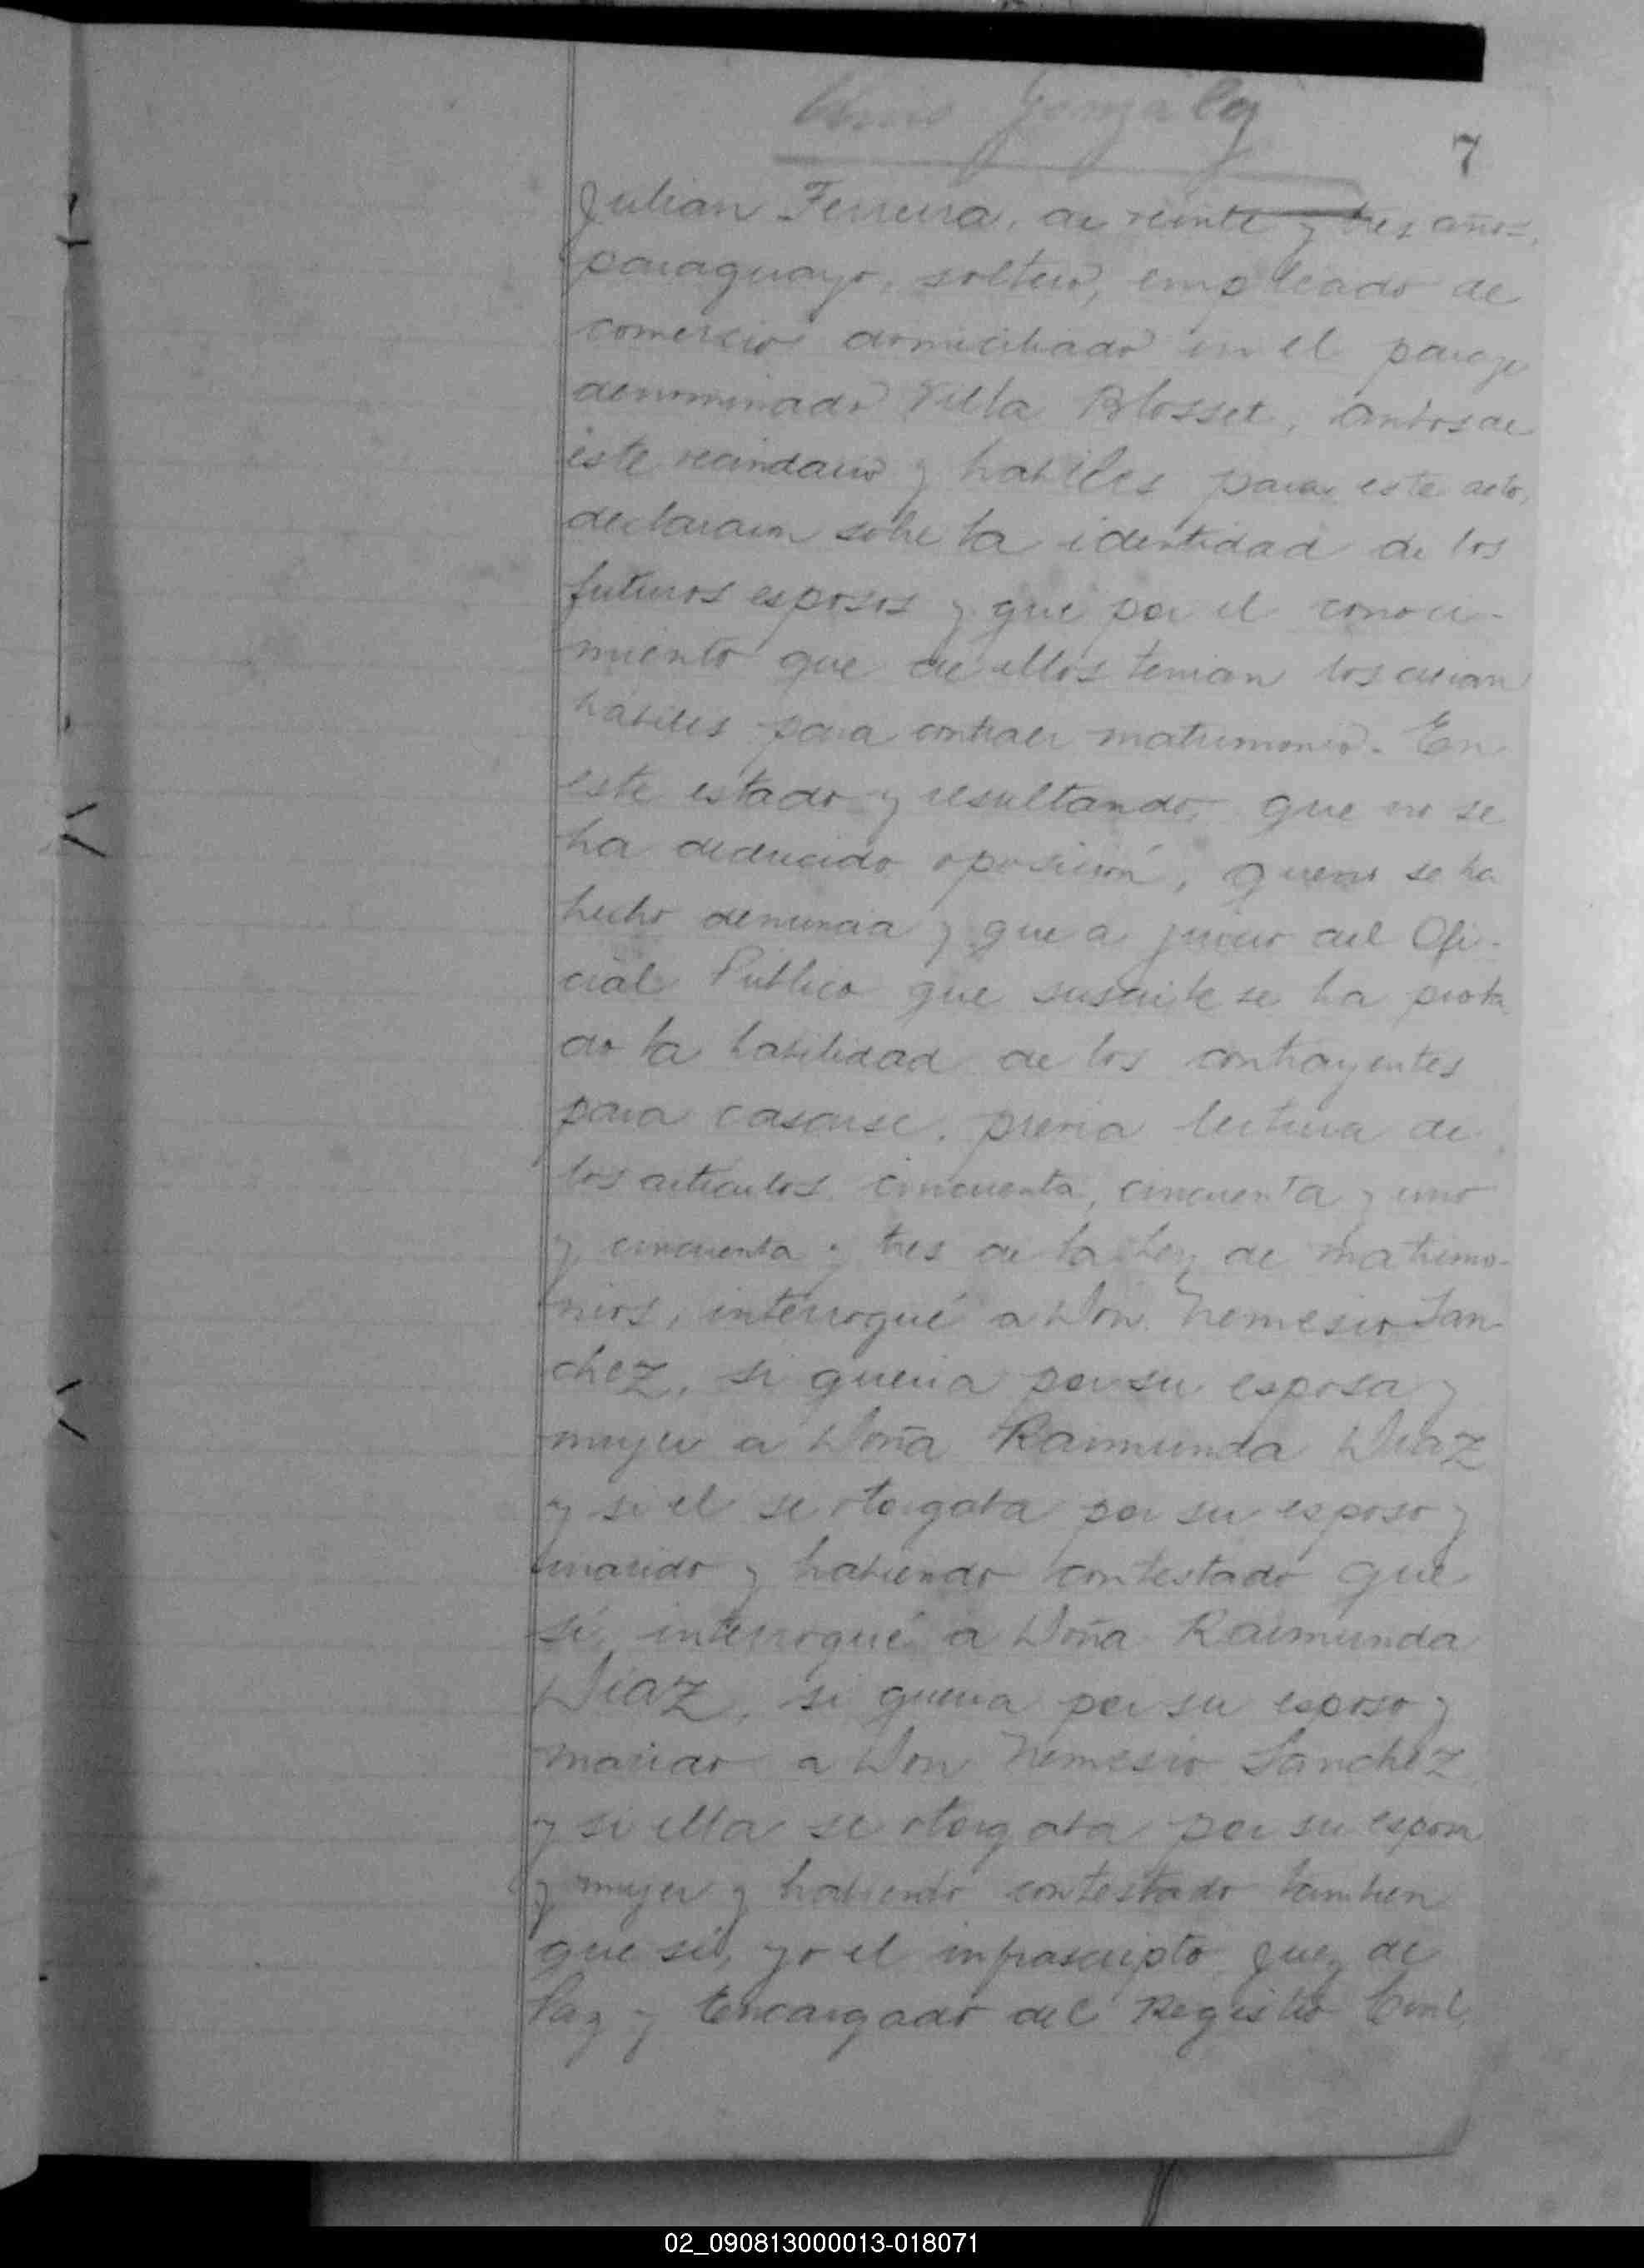 Gonzalez
7
Julian Ferreira, de veinte y tres años,
paraguayo, soltero, empleado de
comercio domiciliado en el paraje
denominado Villa Blosset, ambos de
este vecindario y habiles para este acto,
declararon sobre la identidad de los
futuros esposos y que por el conoci-
miento que de ellos tenian los creian
habiles para contraer matrimonio. En
este estado y resultando, que no se
ha deducido oposición, que no se ha
hecho denuncia y que a juicio del Ofi-
cial Publico que suscribe se ha proba
do la habilidad de los contrayentes
para casarse, previa lectura de
los articulos cincuenta, cincuenta y uno
y cincuenta y tres de la Ley de matrimo-
nios, interrogué a Don Nemesio San-
chez, si queria por su esposa y
mujer a Doña Raimunda Diaz
y si el se otorgaba por su esposo y
marido y habiendo contestado que
sí, interrogué a Doña Raimunda
Diaz, si queria por su esposo y
marido a Don Nemesio Sanchez
y si ella se otorgaba por su esposa
y mujer y habiendo contestado tambien
que sí, yo el infrascripto Juez de
Paz y Encargado del Registro Civil,
02_090813000013-018071